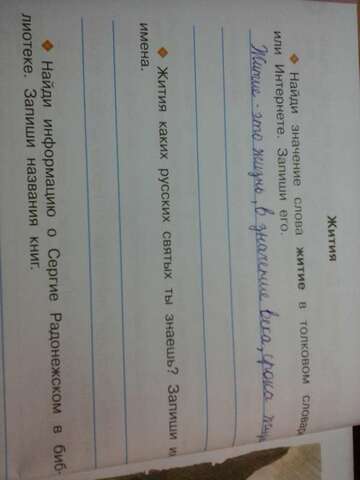 Жития
Найди значение слова житие в толковом словар
или Интернете. Запиши его.
Житие - это жизнь, в значение века, срока
Жития каких русских святых ты знаешь? Запиши и
имена.
Найди информацию о Сергие Радонежском в биб-
лиотеке. Запиши названия книг.